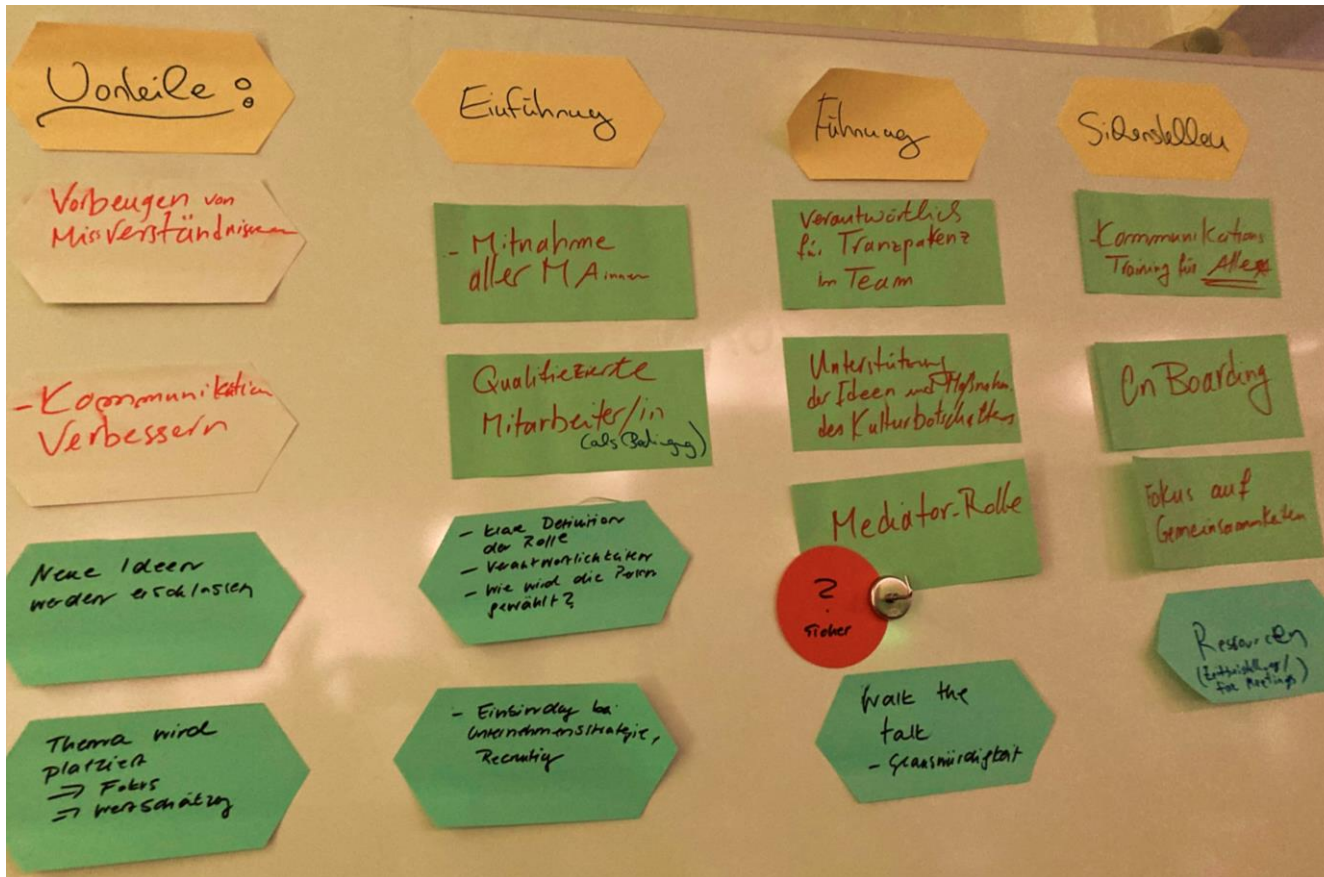 Vorteile :
Vorbeugen von
Missverständnissen
- Kommunikation
Verbessern
Neue Ideen
werden erschlossen
Thema wird
platziert
=> Fokus
=> Wertschätzung
Einführung
- Mitnahme
aller MAinnen
Qualifiezierte
Mitarbeiter/in
(als Bedingung)
- klare Definition
der Rolle
- Verantwortlichkeiten
- wie wird die Person
gewählt?
- Einbindung bei
Unternehmensstrategie,
Recruiting
Führung
Verantwortlich
für Tranzpatenz
im Team
Unterstützung
der Ideen und Maßnahmen
des Kulturbotschafters
Mediator-Rolle
?
Sicher
Walk the
talk
- Glaubwürdigkeit
Sicherstellen
- Kommunikations
Training für Alle
OnBoarding
Fokus auf
Gemeinsamkeiten
Ressourcen
for Meetings)